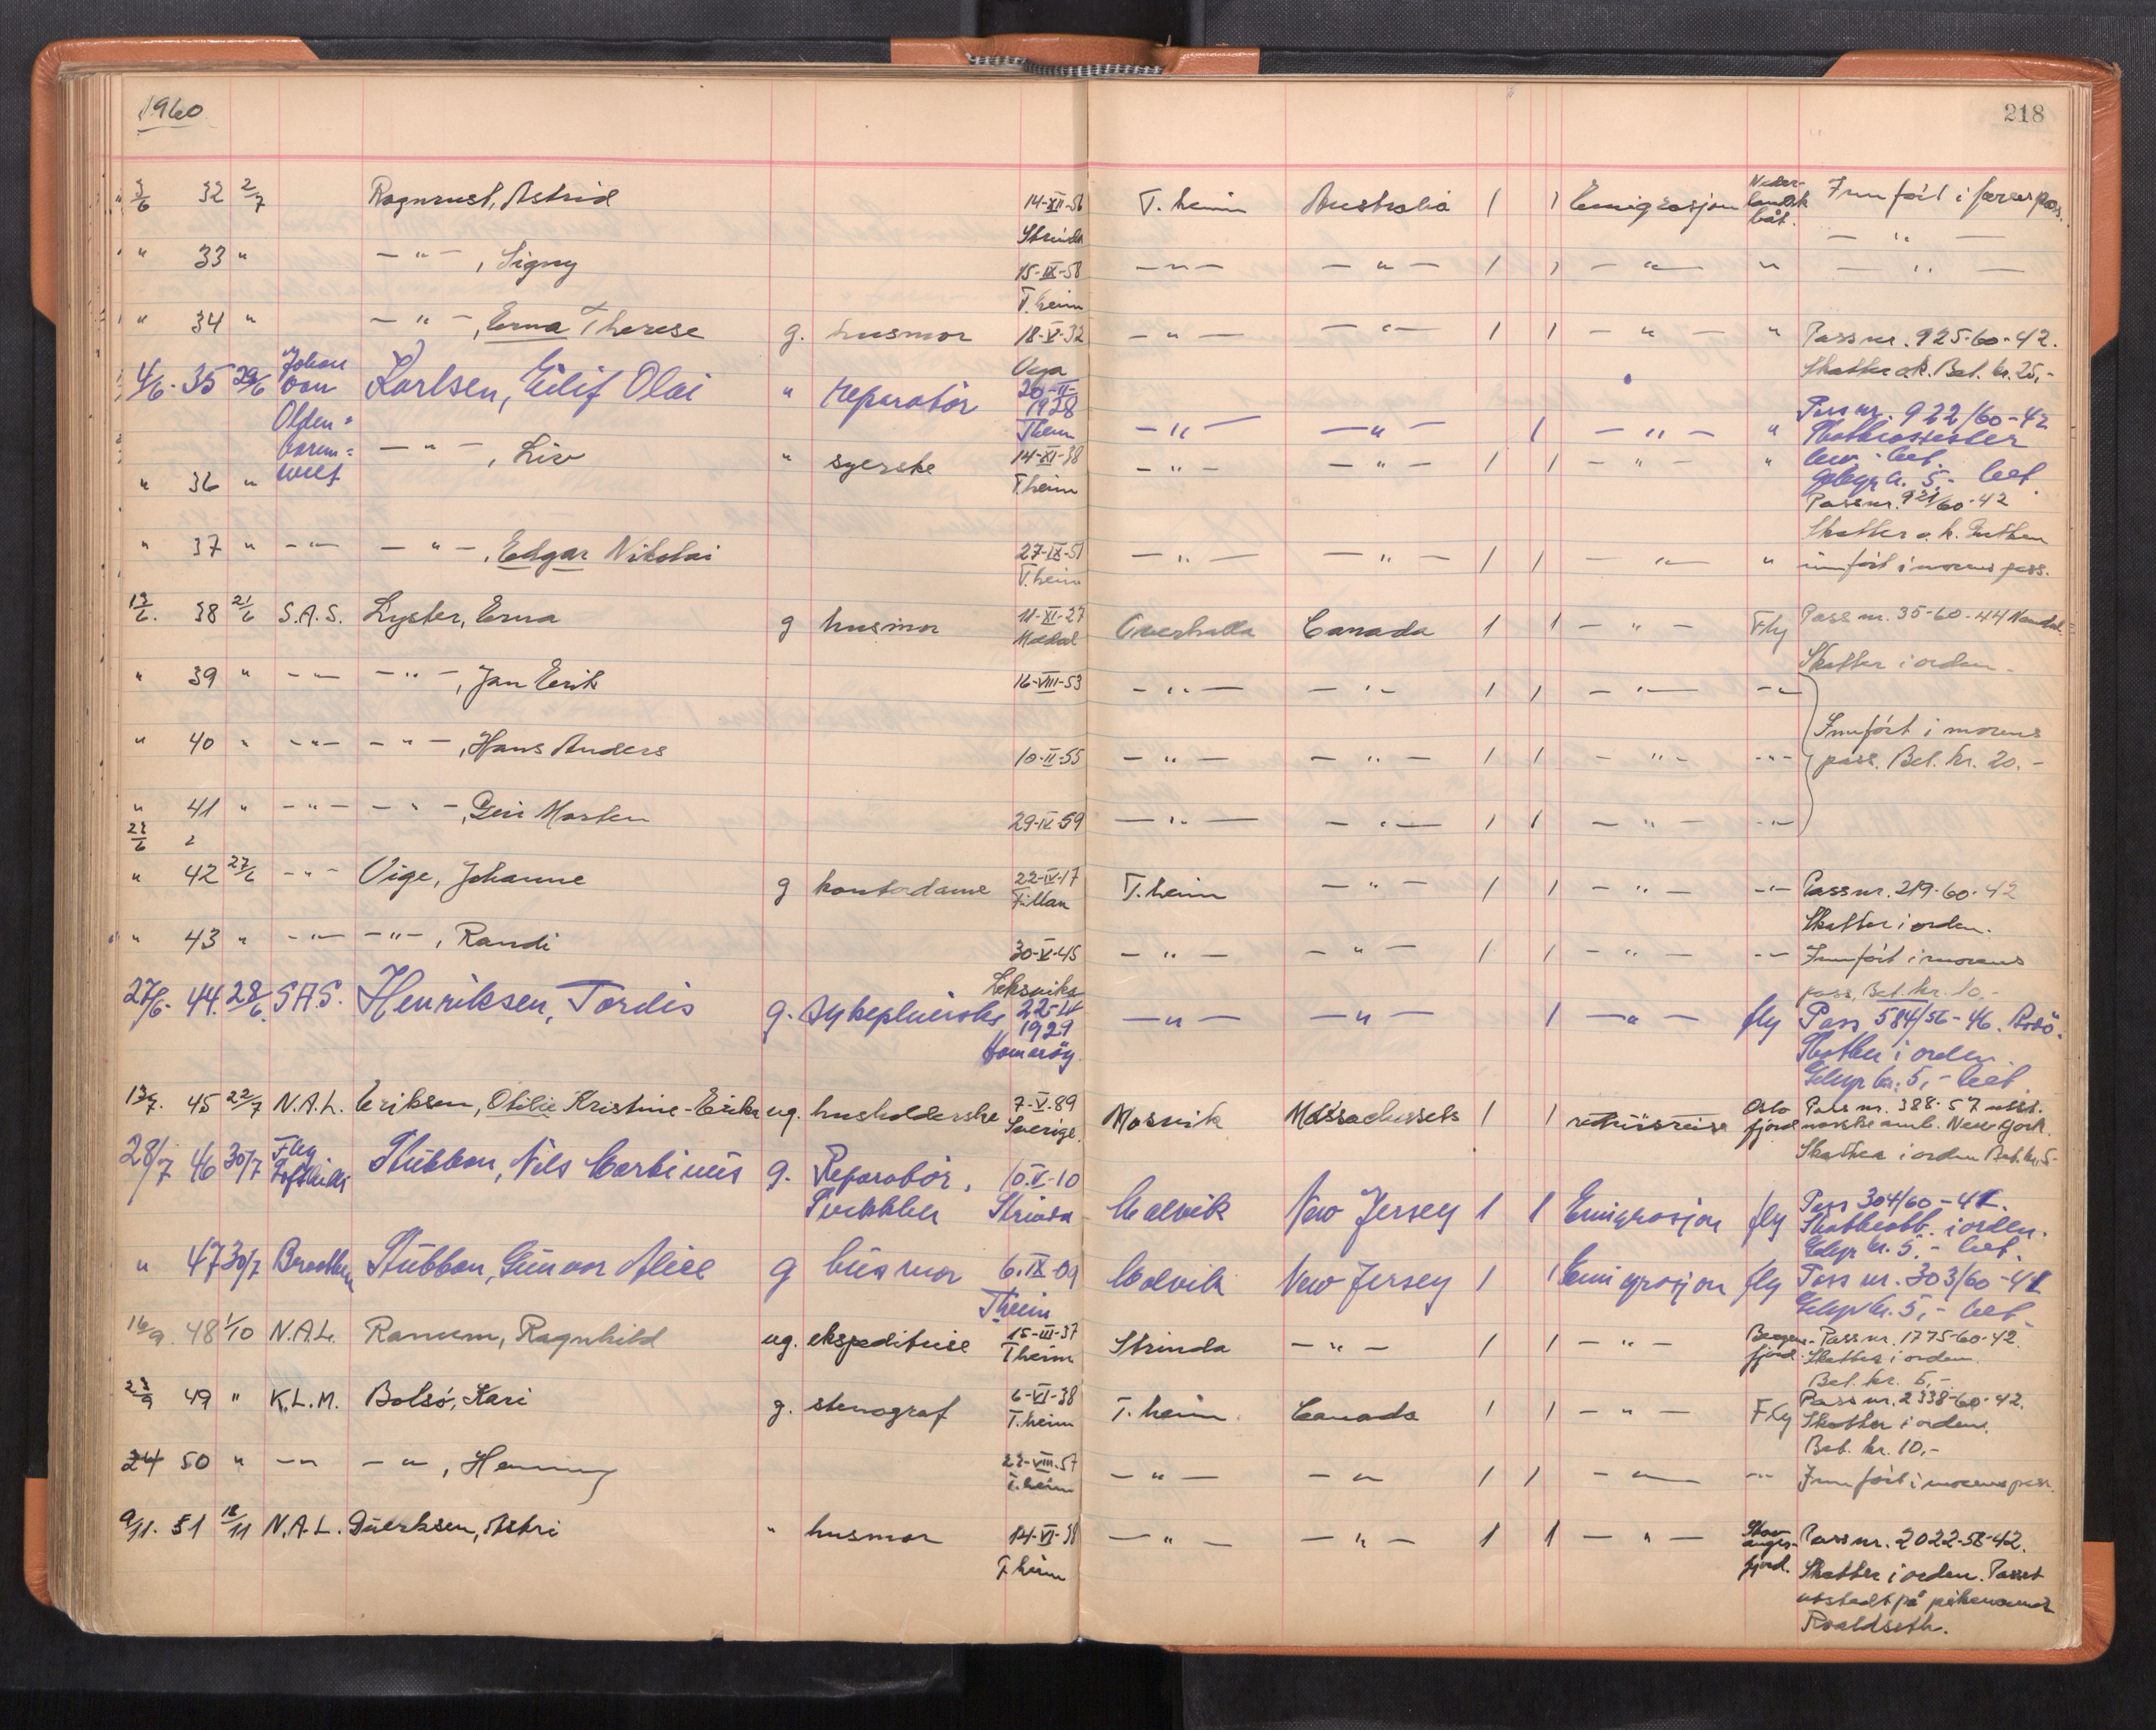 1960
218
3/6 32 2/7 Ragnrust, Astrid 14-XII-56 T.heim Australia 1 1 Emigrasjon Neder-landsk båt. Innført i farens pass.
Strinda — " —
" 33 " — " — , Signy 15-IX-58 — " — — " — 1 1 — " — " — " —
T.heim
" 34 " — " — , Erna Therese g. husmor 18-V-32 — " — — " — 1 1 — " — " Passnr. 925-60-42.
Vega Skatter o.k. Bet. kr. 25,-
4/6. 35 29/6 Johan van Olden-barne-velt Karlsen, Eilif Olai " reparatør 20-II-1928 T.heim — " — — " — 1 — " — " Pass nr. 922/60-42
Skatterestester
lev. bet.
Gebyr kr. 5,- bet.
" 36 " — " — , Liv " syerske 14-XI-38 T.heim — " — — " — 1 1 — " — " Passnr. 921/60-42
Skatter o.k. Gutten
" 37 " — " — — " — , Edgar Nikolai 27-IX-51 T.heim — " — — " — 1 1 — " — " innført i morens pass.
13/6. 38 21/6 S.A.S. Lyster, Erna g husmor 11-XI-27 Overhalla Canada 1 1 — " — Fly Pass nr. 35-60-44 Namdal
Skatter i orden.
" 39 " — " — — " — , Jan Erik 16-VIII-53 — " — — " — 1 1 — " — — " —
" 40 " — " — — " — , Hans Anders 10-II-55 — " — — " — 1 1 — " — — " — Innført i morens
pass. Bet. kr. 20.-
" 41 " — " — — " — , Geir Morten 29-IV-59 — " — — " — 1 1 — " — — " —
23/6 2
" 42 27/6 — " — Vige, Johanne g kontordame 22-IV-17 Fillan T.heim — " — 1 1 — " — — " — Passnr. 219-60-42
Skatter i orden.
" 43 " — " — — " — , Randi 30-V-45 — " — — " — 1 1 — " — — " — Innført i morens
Leksvika pass, Bet. kr. 10,-
27/6. 44. 28/6. SAS. Henriksen, Tordis g. sykepleierske 22-IV 1929 Hamarøy. — " — — " — 1 — " — fly Pass 584/56-46. Bodö.
Skatter i orden.
Gebyr kr. 5,- bet.
13/7. 45 22/7 N.A.L. Eriksen, Otilie Kristine-Erika ug. husholderske 7-V-89 Sverige. Mosvik Massachussets 1 1 returreise Oslo fjord Pass nr. 388-57 utst.
norske amb. New York.
Skatter i orden Bet. kr. 5-
28/7 46 30/7 Fly Loftleidir Stubban, Nils Corbinus g. Reparatør, 10.V-10 Strinda Malvik New Jersey 1 1 Emigrasjon fly Pass 304/60-41.
Skatteatt. i orden.
Gebyr kr. 5,- bet.
" 47 30/7 Stubban, Gunvor Alice g husmor 6.IX-09 T.heim Malvik New Jersey 1 1 Emigrasjon fly Pass nr. 303/60-41
Gebyr kr. 5,- bet.
16/9. 48 1/10 N.A.L. Ranum, Ragnhild ug. ekspeditrise 15-III-37 T.heim Strinda — " — 1 1 — " — Bergens-fjord. Passnr. 1775-60-42.
Skatter i orden.
Bet. kr. 5,-
23/9 49 " K.L.M. Bolsø, Kari g. stenograf 6-VI-38 T.heim T.heim. Canada 1 1 — " — Fly Passnr. 2338-60-42.
Skatter i orden.
Bet. kr. 10,-
24 50 " — " — — " — , Henning 22-VIII-57 T.heim — " — — " — 1 1 — " — — " — Innført i morens pass.
9/11. 51 18/11 N.A.L. Astri " husmor 14-VI-38 T.heim — " — — " — 1 1 — " — Stav-anger-fjord. Passnr. 2022-58-42.
Skatter i orden. Passet
utstedt på pikenavnet
Roaldseth.